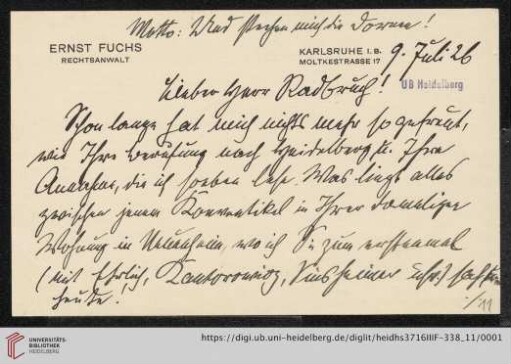 Motto: Und stechen mich die Dornen!
ERNST FUCHS
RECHTSANWALT
KARLSRUHE I. B.
MOLTKESTRASSE 17
9. Juli 26
UB Heidelberg
Lieber Herr Radbruch!
Schon lange hat mich nichts mehr so gefreut,
wie Ihre Berufung nach Heidelberg u. Ihre
Annahme, die ich soeben lese. Was liegt alles
zwischen jenem Konventikel in Ihrer damaligen
Wohnung in Neuenheim, wo ich Sie zum erstenmal
(mit Ehrlich, Kantorowicz, Sinsheimer sah u.
heute!
./11
UNIVERSITÄTS-
BIBLIOTHEK
HEIDELBERG
https://digi.ub.uni-heidelberg.de/diglit/heidhs3716IIIF-338_11/0001